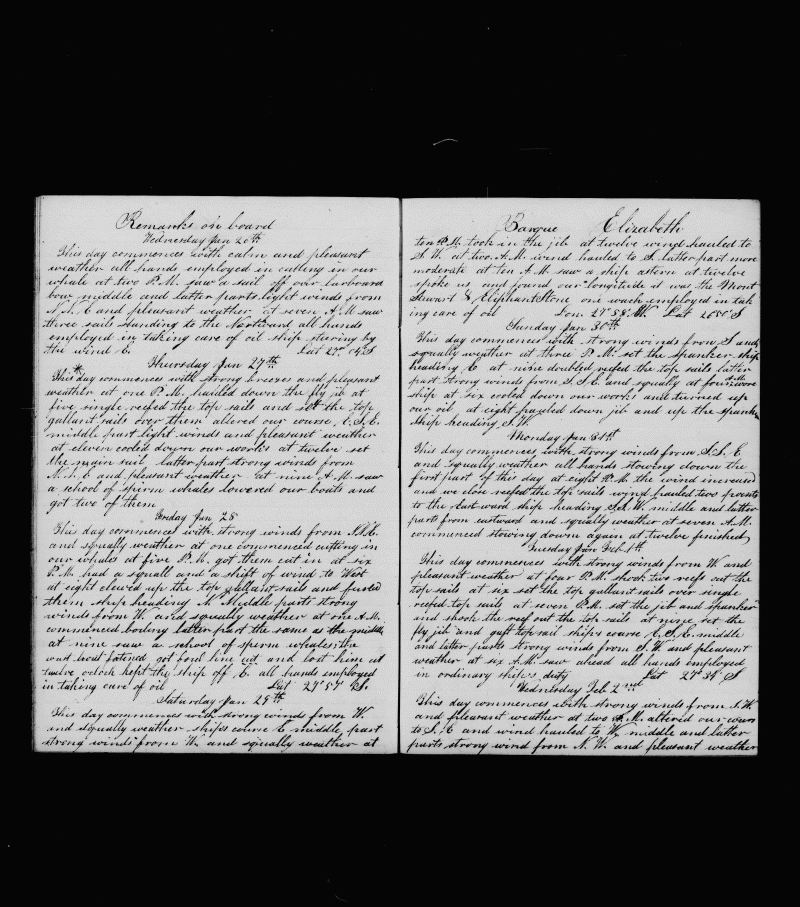 Remarks on board
Wednesday Jan 26th
This day commences with calm and pleasant
weather all hands employed in cutting in our
whale at two P.M. saw a sail off our larboard
bow middle and latter parts light winds from
N.N.E and pleasant weather at seven A.M saw
three sails standing to the Northward all hands
employed in taking care of oil ship steering by
the wind E. Lat 27° S
Thursday Jan 27th
This day commences with strong breezes and pleasant
weather at one P.M. hauled down the fly jib at
five single reefed the top sails and set the top
gallant sails over them altered our course, E.S.E.
middle part light winds and pleasant weather
at eleven cooled down our works at twelve set
the main sail latter part strong winds from
N.N.E and pleasant weather at nine A.M. saw
a school of sperm whales lowered our boats and
got two of them
Friday Jan 28
This day commences with strong winds from
and squally weather at one commenced cutting in
our whales at five P.M. got them cut in at six
P.M. had a squall and a shift of wind to West
at eight clewed up the top gallant sails and furled
them ship heading N. Middle parts strong
winds from W. and squally weather at one A.M.
commenced boiling latter part the same as the middle
at nine saw a school of sperm whales the
boat fastened got foul line cut and lost him at
twelve oclock kept the ship off E. all hands employed
in taking care of oil Lat 27° 57' S.
Saturday Jan 29th
This day commences with strong winds from W.
and squally weather ships course E middle part
strong winds from W. and squally weather at
Barque Elizabeth
ten P.M. took in the jib at twelve wind hauled to
S.W. at two A.M. wind hauled to S. latter part more
moderate at ten A.M. saw a ship astern at twelve
spoke us and found our longitude it was the Mont
Stewart & Eliphant Stone one wach employed in tak
ing care of oil Lon. 27° 58' W Lat 26° S
Sunday Jan 30th
This day commences with strong winds from S and
squally weather at three P.M. set the spanker ship
heading E at nine doubled reefed the top sails latter
part strong winds from S.S.E and squally at four A.M. wore
ship at six cooled down our works and turned up
our oil at eight hauled down jib and up the spank
Ship heading S.W.
Monday Jan 31st
This day commences with strong winds from S.S.E
and squally weather all hands stowing down the
first part of this day at eight P.M. the wind increased
and we close reefed the top sails wind hauled two points
to the Eastward ship heading S.S.W. middle and latter
parts from eastward and squally weather at seven A.M.
commenced stowing down again at twelve finished
Tuesday Jan Feb 1th
This day commences with strong winds from W and
pleasant weather at four P.M. shook two reefs out the
top sails at six set the top gallant sails over single
reefed top sails at seven P.M. set the jib and spanker
and shook the reef out the top sails at nine set the
fly jib and gaft top sail ships course E.S.E. middle
and latter parts strong winds from S.W and pleasant
weather at six A.M. saw ahead all hands employed
in ordinary ship's duty Lat 27° 38' S
Wednesday Feb 2nd
This day commences with strong winds from S.W
and pleasant weather at two P.M. altered our cours
to S.E and wind hauled to W. middle and latter
parts strong wind from N.W. and pleasant weather